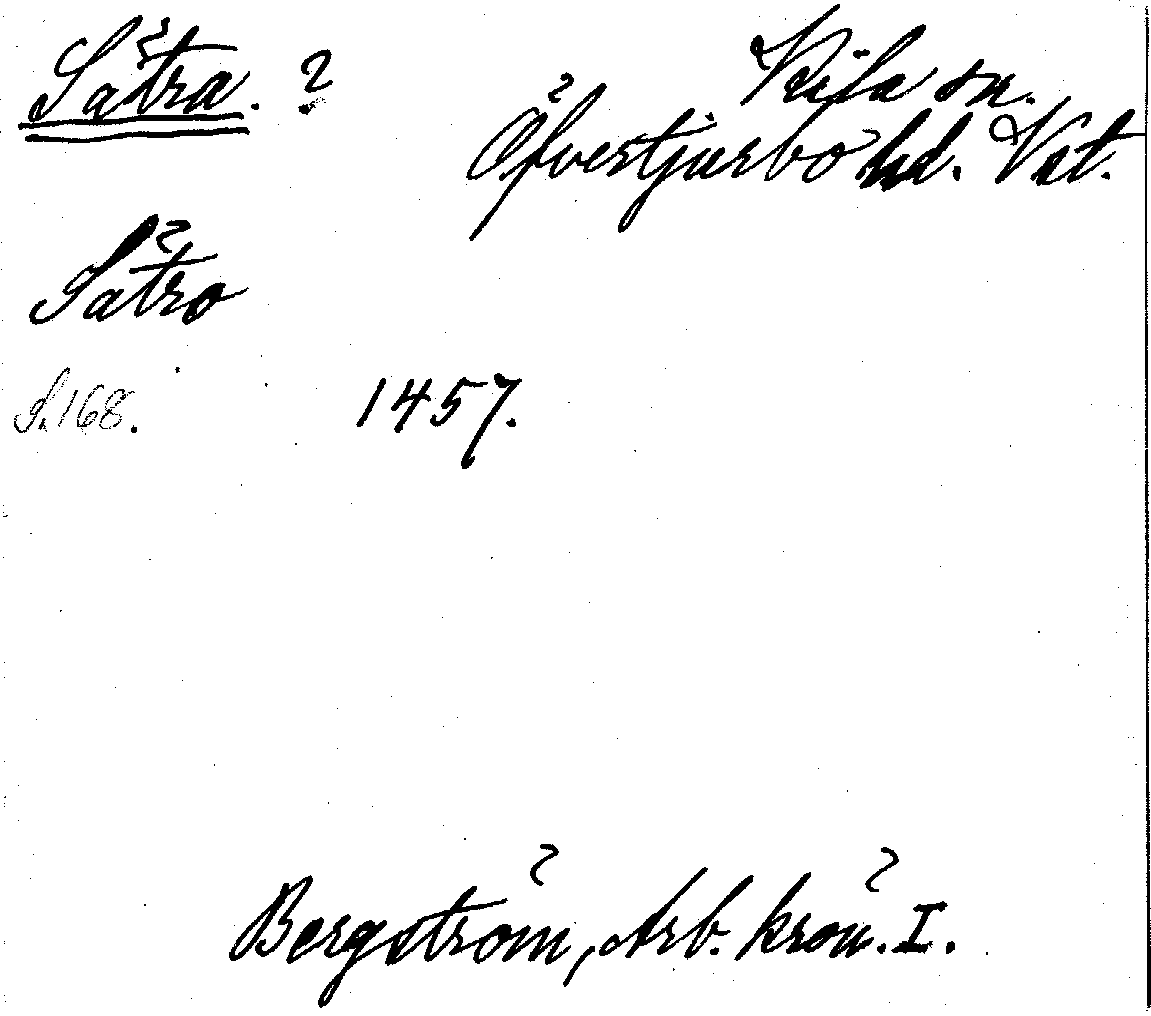 Sätra. ?
Kila sn.
Öfvertjurbo hd. Vst.
Sätro
S. 168.
1457.
Bergström, Arb. krön. I.